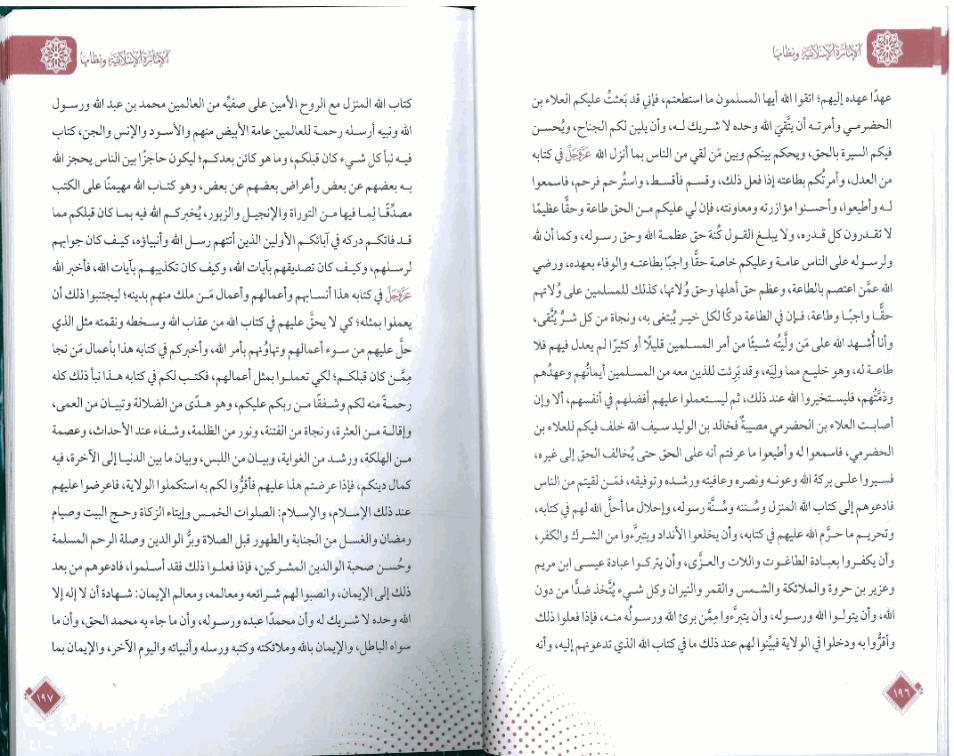 الإمارة الإسلامية ونظامها
عهدًا عهده إليهم؛ اتقوا الله أيها المسلمون ما استطعتم، فإني قد بَعثتُ عليكم العلاء بن
الحضرمي وأمرته أن يتَّقيَ الله وحده لا شريك لـه، وأن يلين لكم الجناح، ويُحسن
فيكم السيرة بالحق، ويحكم بينكم وبين مَن لقي من الناس بما أنزل الله عَزَّوَجَلَّ في كتابه
من العدل، وأمرتُكم بطاعته إذا فعل ذلك، وقسم فأقسط، واستُرحم فرحم، فاسمعوا
لـه وأطيعوا، وأحسنوا مؤازرته ومعاونته، فإن لي عليكم من الحق طاعة وحقًّا عظيمًا
لا تقدرون كل قدره، ولا يبلغ القول كُنهَ حق عظمة الله وحق رسوله، وكما أن لله
ولرسوله على الناس عامة وعليكم خاصة حقًّا واجبًا بطاعته والوفاء بعهده، ورضي
الله عمَّن اعتصم بالطاعة، وعظم حق أهلها وحق وُلاتها، كذلك للمسلمين على وُلاتهم
حقًّا واجبًا وطاعة، فإن في الطاعة دركًا لكل خير يُبتغى به، ونجاة من كل شرٍّ يُتَّقى،
وأنا أُشهد الله على مَن ولَّيتُه شيئًا من أمر المسلمين قليلًا أو كثيرًا لم يعدل فيهم فلا
طاعة له، وهو خليع مما وليَه، وقد بَرِئت للذين معه من المسلمين أيمانُهم وعهدُهم
وذمَّتُهم، فليستخيروا الله عند ذلك، ثم ليستعملوا عليهم أفضلهم في أنفسهم، ألا وإن
أصابت العلاء بن الحضرمي مصيبةٌ فخالد بن الوليد سيف الله خلف فيكم للعلاء بن
الحضرمي، فاسمعوا له وأطيعوا ما عرفتم أنه على الحق حتى يُخالف الحق إلى غيره،
فسيروا على بركة الله وعونه ونصره وعافيته ورشده وتوفيقه، فمَن لقيتم من الناس
فادعوهم إلى كتاب الله المنزل وسُننه وسُنَّة رسوله، وإحلال ما أحلَّ الله لهم في كتابه،
وتحريم ما حرَّم الله عليهم في كتابه، وأن يخلعوا الأنداد ويتبرَّءوا من الشرك والكفر،
وأن يكفروا بعبادة الطاغوت واللات والعزَّى، وأن يتركوا عبادة عيسى ابن مريم
وعزير بن حروة والملائكة والشمس والقمر والنيران وكل شيء يُتَّخذ ضدًّا من دون
الله، وأن يتولوا الله ورسوله، وأن يتبرَّءوا مِمَّن برئ الله ورسولُه منه، فإذا فعلوا ذلك
وأقرُّوا به ودخلوا في الولاية فبيِّنوا لهم عند ذلك ما في كتاب الله الذي تدعونهم إليه، وأنه
١٩٦
الإمارة الإسلامية ونظامها
كتاب الله المنزل مع الروح الأمين على صفيِّه من العالمين محمد بن عبد الله ورسول
الله ونبيه أرسله رحمة للعالمين عامة الأبيض منهم والأسود والإنس والجن، كتاب
فيه نبأ كل شيء كان قبلكم، وما هو كائن بعدكم؛ ليكون حاجزًا بين الناس يحجز الله
به بعضهم عن بعض وأعراض بعضهم عن بعض، وهو كتاب الله مهيمنًا على الكتب
مصدِّقًا لِما فيها من التوراة والإنجيل والزبور، يُخبركم الله فيه بما كان قبلكم مما
قد فاتكم دركه في آبائكم الأولين الذين أتتهم رسل الله وأنبياؤه، كيف كان جوابهم
لرسلهم، وكيف كان تصديقهم بآيات الله، وكيف كان تكذيبهم بآيات الله، فأخبر الله
عَزَّوَجَلَّ في كتابه هذا أنسابهم وأعمالهم وأعمال مَن ملك منهم بدينه؛ ليجتنبوا ذلك أن
يعملوا بمثله؛ كي لا يحقَّ عليهم في كتاب الله من عقاب الله وسخطه ونقمته مثل الذي
حلَّ عليهم من سوء أعمالهم وتهاوُنهم بأمر الله، وأخبركم في كتابه هذا بأعمال مَن نجا
مِمَّن كان قبلكم؛ لكي تعملوا بمثل أعمالهم، فكتب لكم في كتابه هذا نبأ ذلك كله
رحمةً منه لكم وشفقًا من ربكم عليكم، وهو هدًى من الضلالة وتبيان من العمى،
وإقالة من العثرة، ونجاة من الفتنة، ونور من الظلمة، وشفاء عند الأحداث، وعصمة
من الهلكة، ورشد من الغواية، وبيان من اللبس، وبيان ما بين الدنيا إلى الآخرة، فيه
كمال دينكم، فإذا عرضتم هذا عليهم فأقرُّوا لكم به استكملوا الولاية، فاعرضوا عليهم
عند ذلك الإسلام، والإسلام: الصلوات الخمس وإيتاء الزكاة وحج البيت وصيام
رمضان والغسل من الجنابة والطهور قبل الصلاة وبرُّ الوالدين وصلة الرحم المسلمة
وحُسن صحبة الوالدين المشركين، فإذا فعلوا ذلك فقد أسلموا، فادعوهم من بعد
ذلك إلى الإيمان، وانصبوا لهم شرائعه ومعالمه، ومعالم الإيمان: شهادة أن لا إله إلا
الله وحده لا شريك له وأن محمدًا عبده ورسوله، وأن ما جاء به محمد الحق، وأن ما
سواه الباطل، والإيمان بالله وملائكته وكتبه ورسله وأنبيائه واليوم الآخر، والإيمان بما
١٩٧